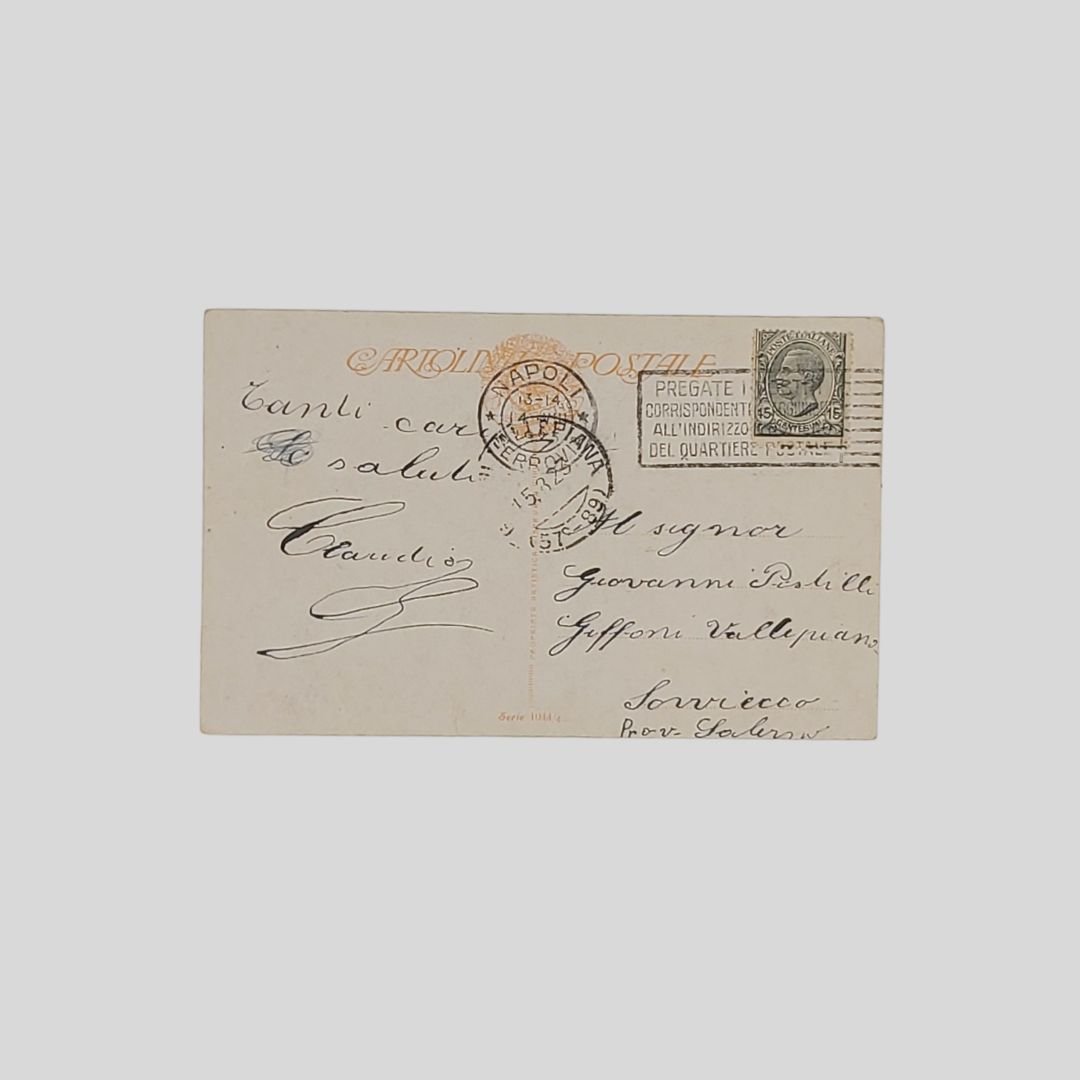 CARTOLINA POSTALE
NAPOLI
13-14
FERROVIA
PIANA
15.8.23
(57-89)
PREGATE I
CORRISPONDENTI
ALL'INDIRIZZO
DEL QUARTIERE POSTALE
POSTE ITALIANE
15 15
CENTESIMI
Tanti cari
saluti
Claudio
Al signor
Giovanni Pistilli
Giffoni Vallepiana
Sovvieco
Prov. Salerno
Serie 1014/